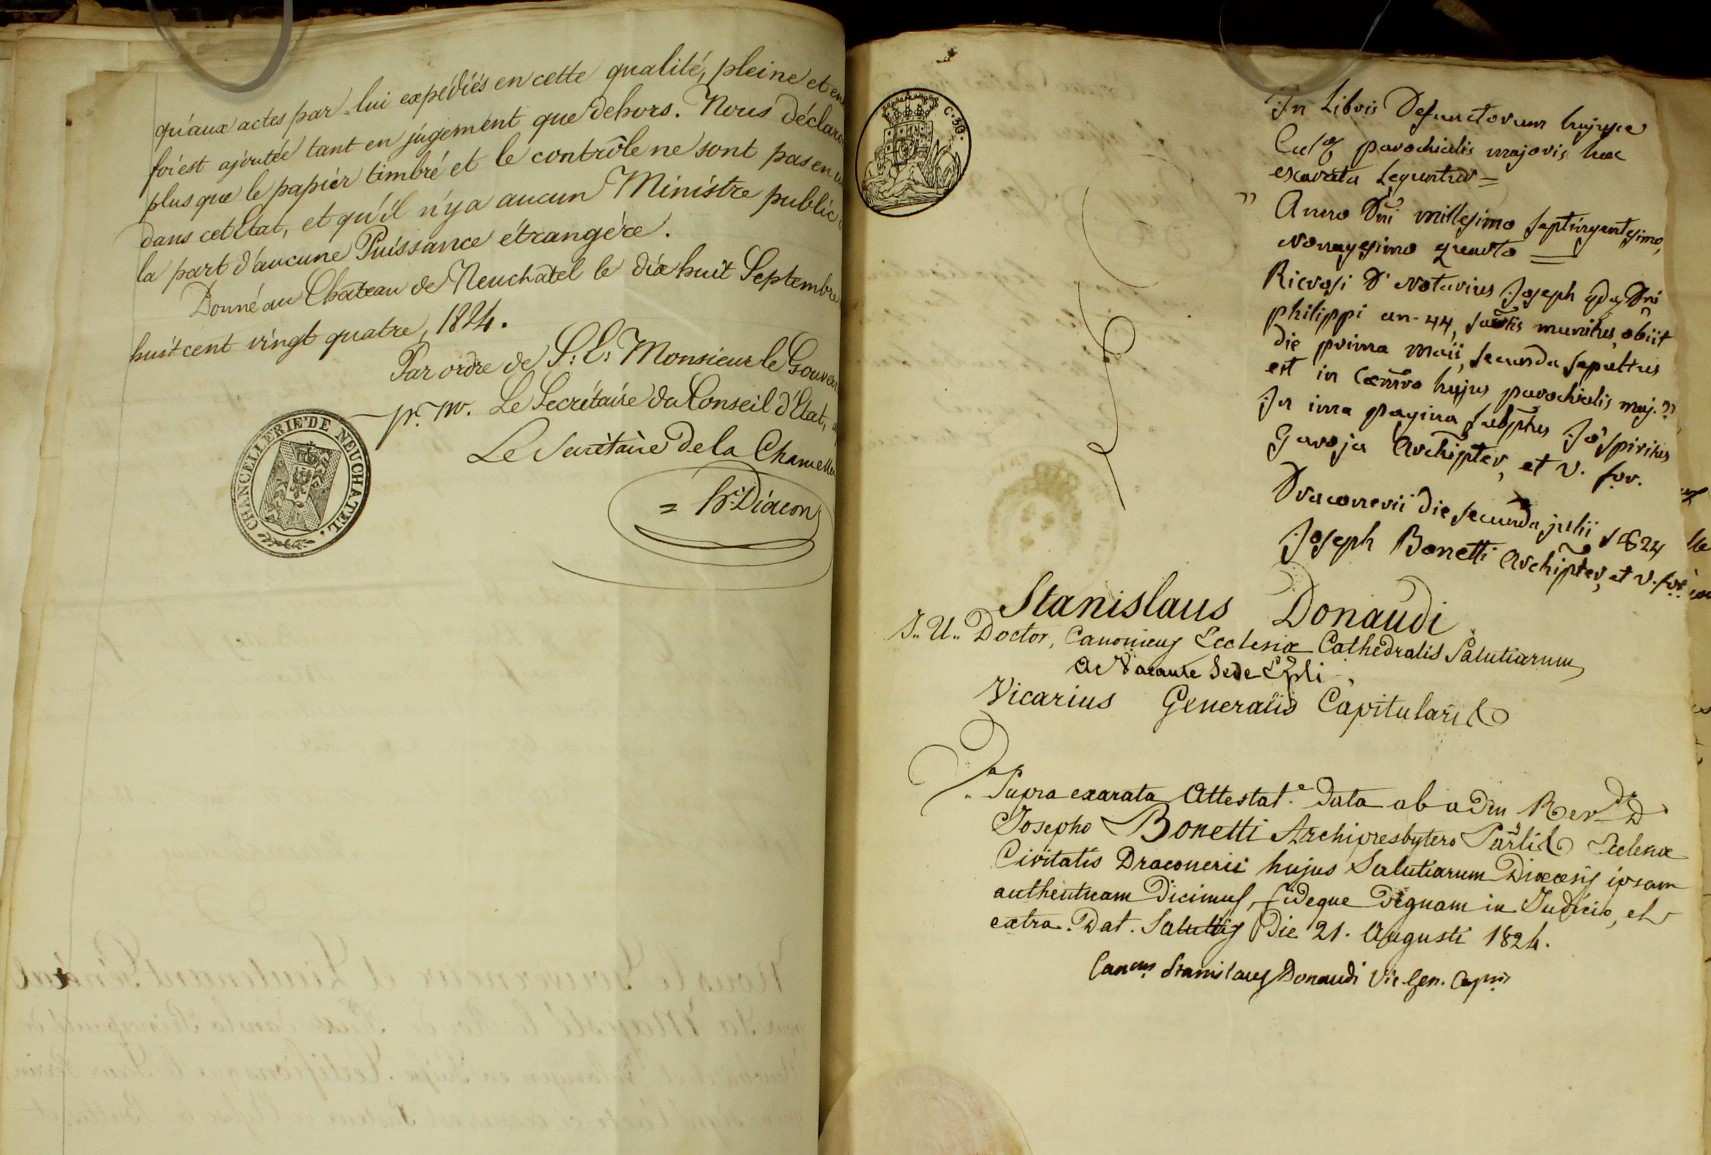 qu'aux actes par lui expédiés en cette qualité, pleine et en
foi est ajoutée tant en jugement que dehors. Nous déclaro
plus que le papier timbré et le contrôle ne sont pas en u
dans cet Etat, et qu'il n'y a aucun Ministre public
la part d'aucune Puissance étrangère.
Donné au Château de Neuchatel le dix huit Septembre
huit cent vingt quatre, 1824.
Par ordre de S. E. Monsieur le Gouver
Le Secrétaire du Conseil d'Etat,
Le Secrétaire de la Chancelle
= hri Diacon
CHANCELLERIE DE NEUCHATEL.
C. 50.
In Libris Defunctorum hujusce
parochialis majoris hæc
exarata Leguntur =
" Anno Dni millesimo septingentesimo,
nonagesimo quarto =
Ricrosi D' Notarius Joseph qdm Dni
philippi an. 44, sactis munitus, obiit
die prima maii, secunda sepultus
est in cœmro hujus parochialis maj. "
In ima pagina subptus Jo' spiritus
Garoja Archipter, et V. for.
Draconerii die secunda julii 1824
Joseph Bonetti Archipter, et V. for.
Stanislaus Donaudi
J. U. Doctor, Canonicus Ecclesiæ Cathedralis Salutiarum,
ac Vacante Sede Epli
Vicarius Generalis Capitularis
Supra exarata Attestat.e data ab adm Rev.do D
Josepho Bonetti Archipresbytero Parlis Ecclesiæ
Civitatis Draconerii hujus Salutiarum Diœcesis ipsam
authenticam Dicimus, fideque Dignam in Judicio, et
extra. Dat. Salutiis Die 21. Augusti 1824.
Can.cus Stanislaus Donaudi Vic. Gen. Capris